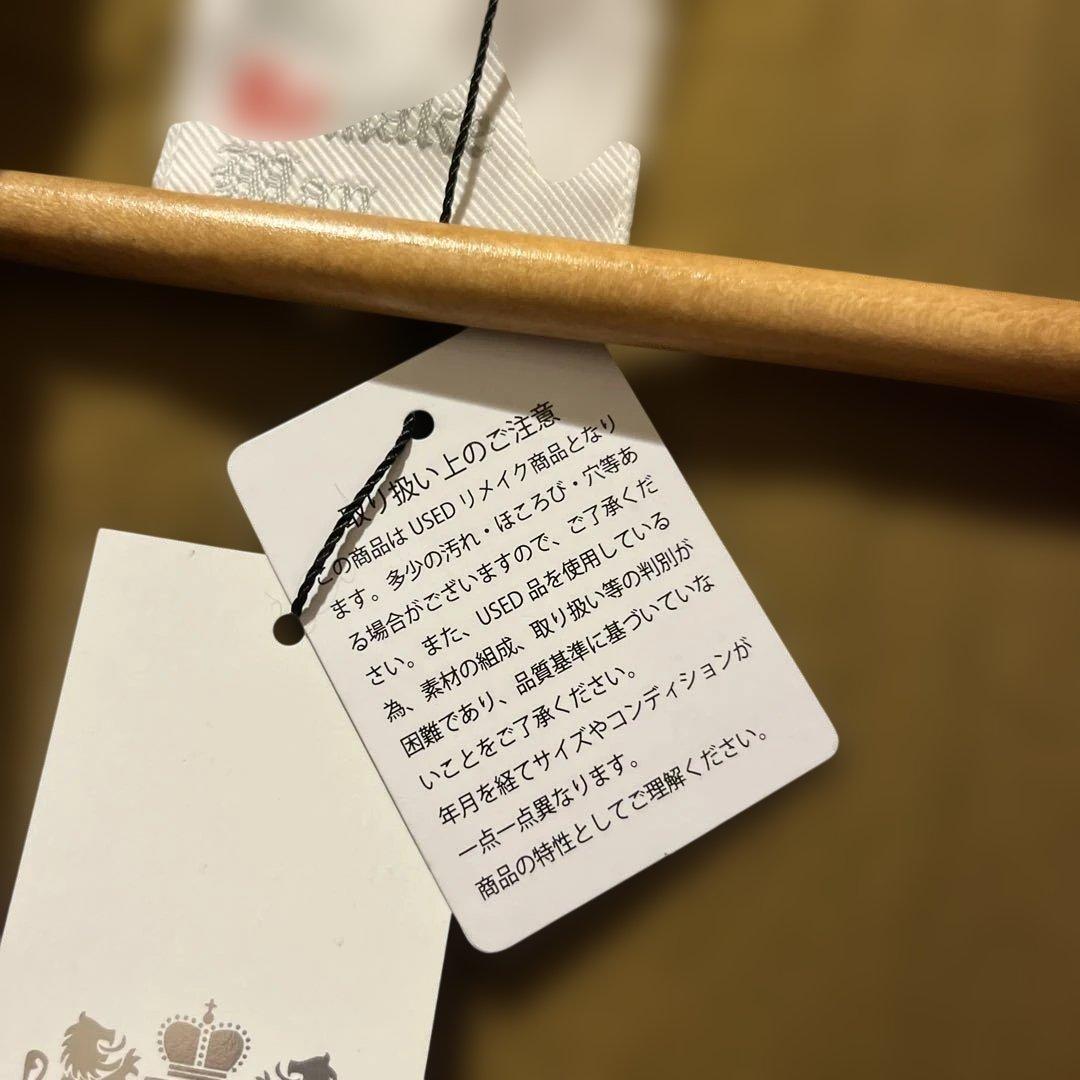 取り扱い上のご注意
この商品は USED リメイク商品となり
ます。多少の汚れ・ほころび・穴等あ
る場合がございますので、ご了承くだ
さい。また、USED 品を使用している
為、素材の組成、取り扱い等の判別が
困難であり、品質基準に基づいていな
いことをご了承ください。
年月を経てサイズやコンディションが
一点一点異なります。
商品の特性としてご理解ください。